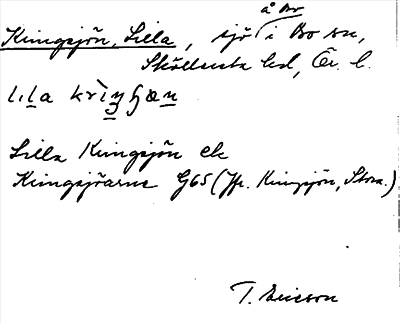 å Br
Kringsjön, Lilla, sjö i Bo sn,
Sköllersta hd, Ör. l.
lıla krìŋʃøn
Lilla Kringsjön ek
Kringsjöarne G65 (Jfr. Kringsjön, Stora.)
T. Ericson